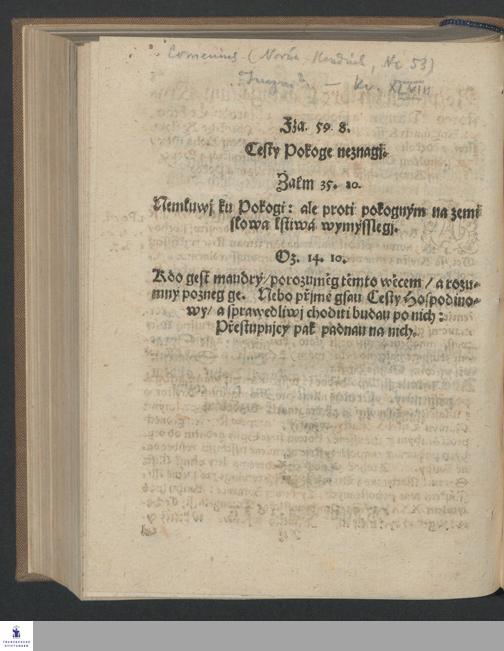 Comenius (Novák-Hendrich, Nr 53)
Iža. 59. 8.
Cesty Pokoge neznagj.
Žalm 35. 20.
Nemluwj ku Pokogi: ale proti pokogným na zemi
slowa lstiwá wymyšslegj.
Oz. 14. 10.
Kdo gest maudrý/ porozuměg těmto wěcem/ a rozu-
mný pozneg ge. Nebo přjmé gsau Cesty Hospodino-
wy/ a sprawedliwj choditi budau po nich:
Přestupnjcy pak padnau na nich.
FRANCKESCHE
STIFTUNGEN